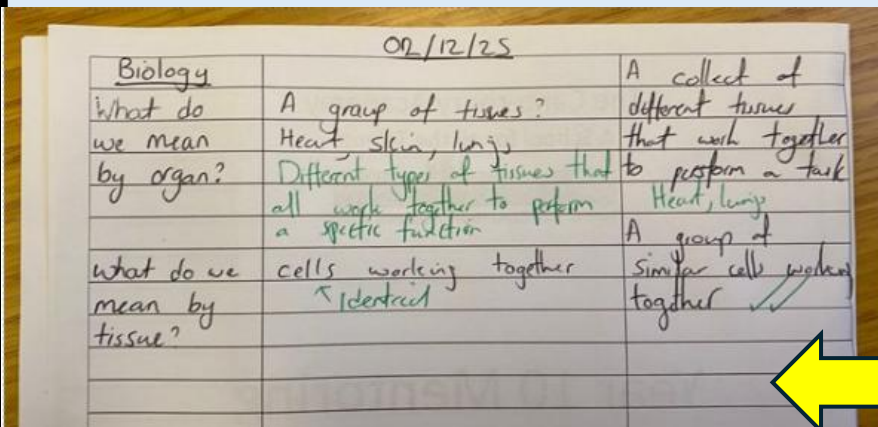 02/12/25
Biology
What do
we mean
by organ?
A group of tissues?
Heart, skin, lungs
Different types of tissues that
all work together to perform
a specific function
A collect of
different tissues
that work together
to perform a task
Heart, lungs
what do we
mean by
tissue?
cells working together
Identical
A group of
similar cells working
together